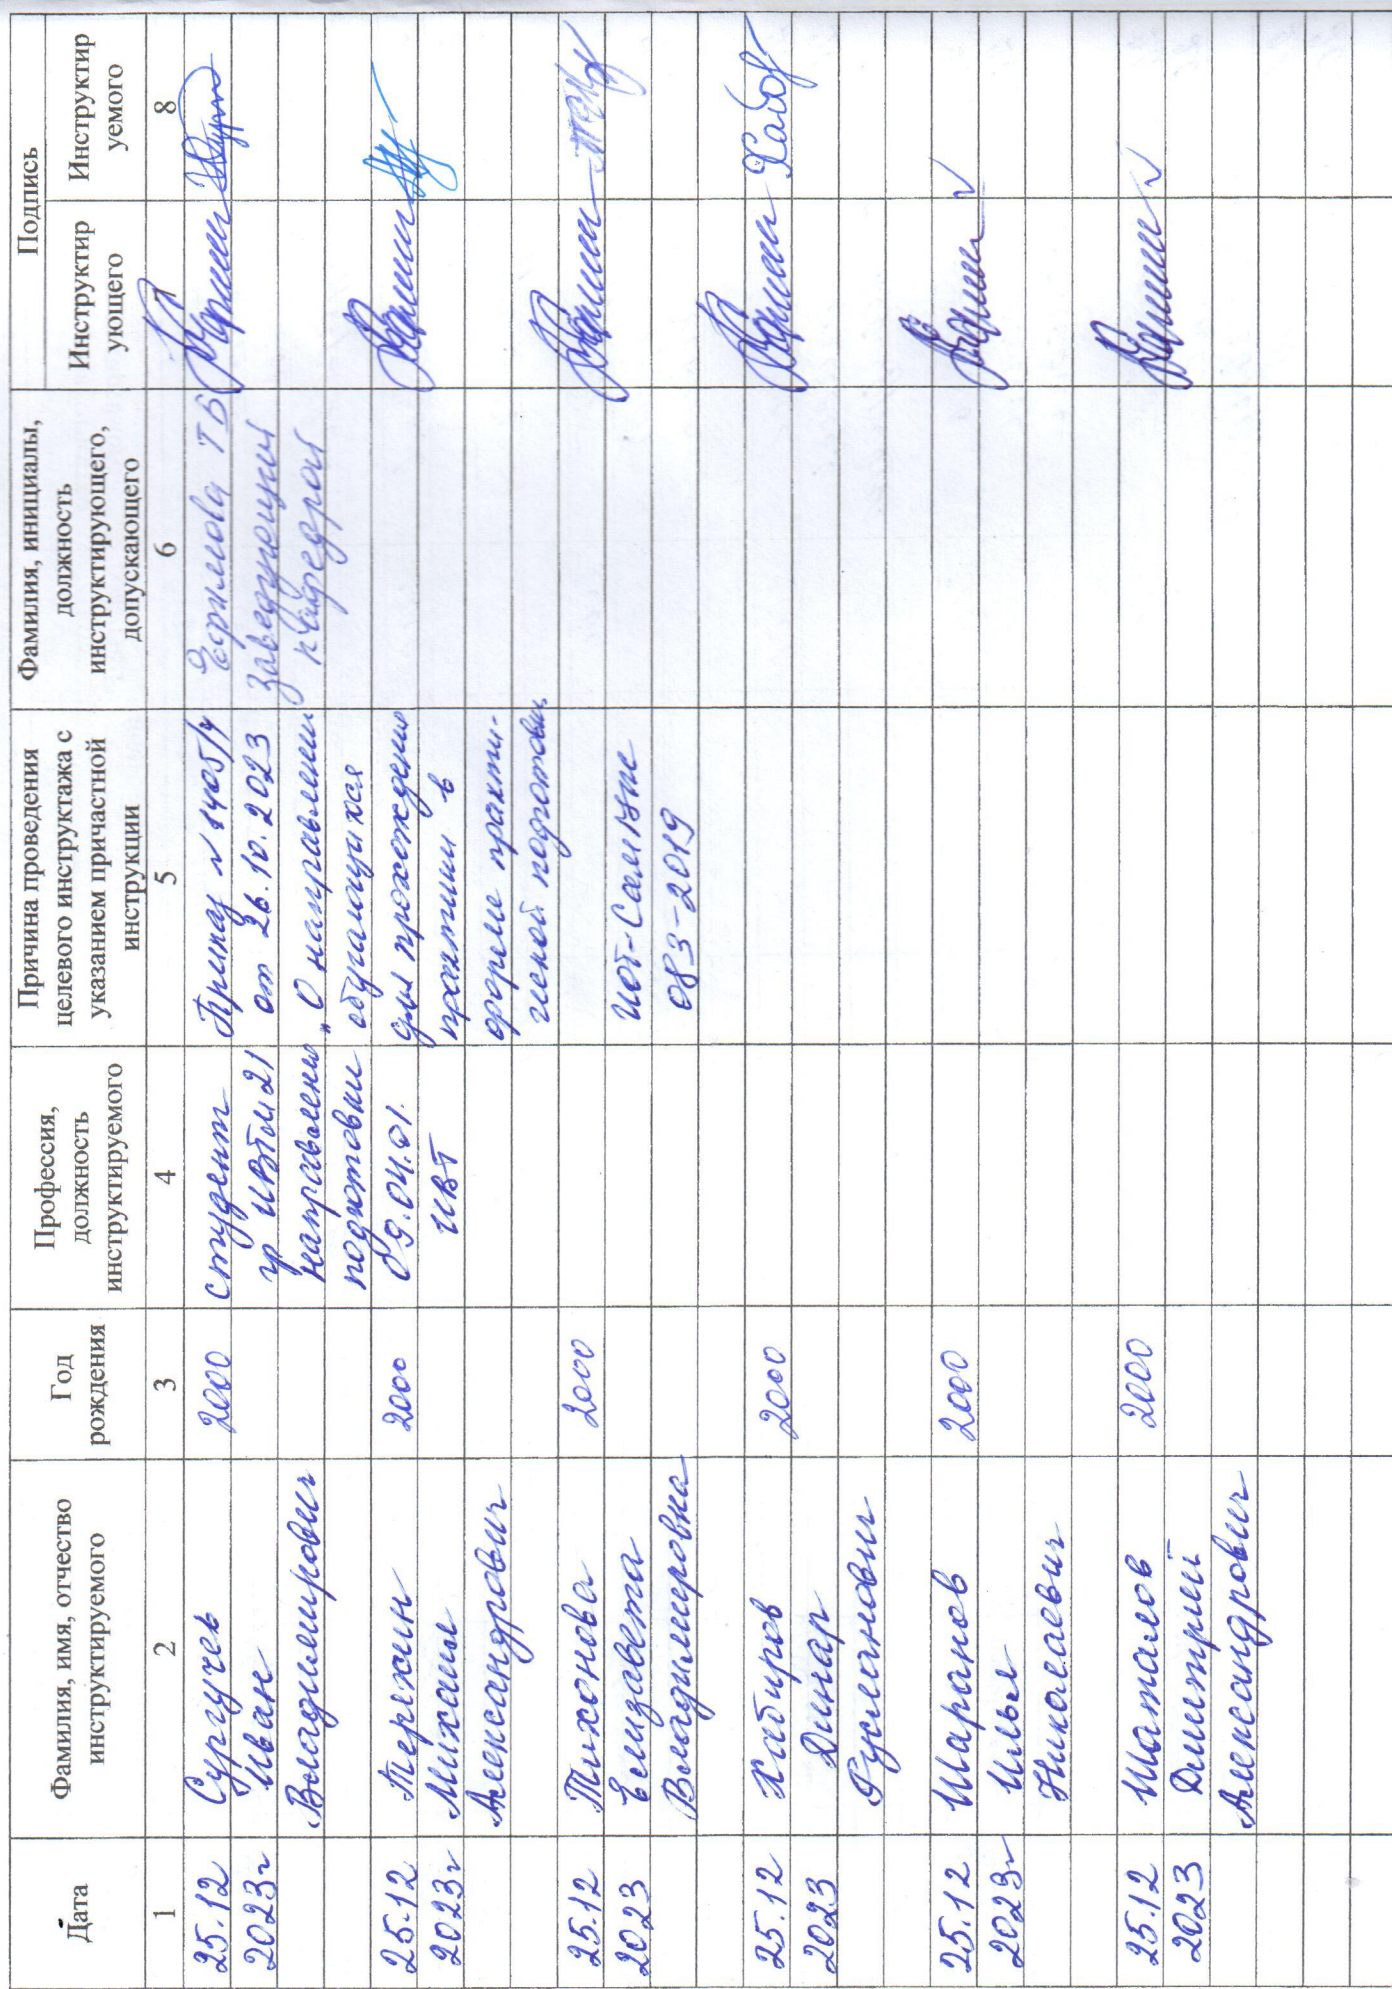 Дата
Фамилия, имя, отчество
инструктируемого
Год
рождения
Профессия,
должность
инструктируемого
Причина проведения
целевого инструктажа с
указанием причастной
инструкции
Фамилия, инициалы,
должность
инструктирующего,
допускающего
Подпись
Инструктир
ующего
Инструктир
уемого
1
2
3
4
5
6
7
8
25.12
2023г
Сургучев
Иван
Владимирович
2000
студент
гр ИВТм21
направления
подготовки
09.04.01.
ИВТ
Приказ
от 26.10.2023
„О направлении
обучающихся
для прохождения
практики в
форме практи-
ческой подготовки
ИОТ-СамГУПС
083-2019
Ефимова ТБ
заведующий
кафедрой
25.12
2023г
Терехин
Михаил
Александрович
2000
25.12
2023
Тихонова
Елизавета
Владимировна
2000
25.12
2023
Хабиров
Динар
Русланович
2000
25.12
2023г
Шарапов
Илья
Николаевич
2000
25.12
2023
Шаталов
Дмитрий
Александрович
2000